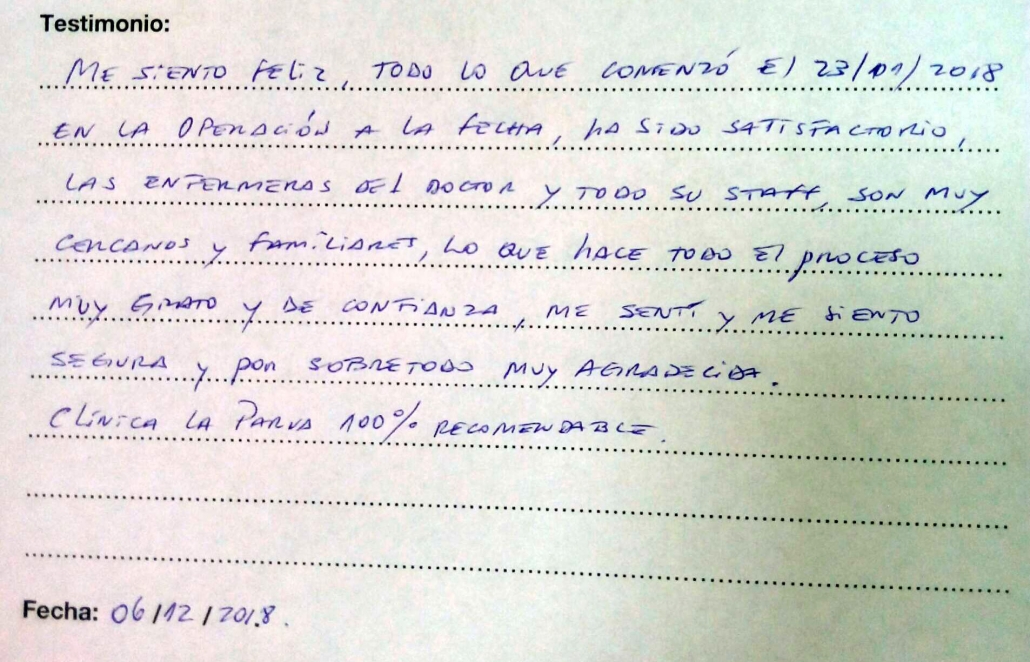 Testimonio:
ME SIENTO FELIZ, TODO LO QUE COMENZÓ El 23/01/2018
EN LA OPERACIÓN A LA FECHA, ha SIDO SATISFACTORIO,
LAS ENFERMERAS DEl DOCTOR Y TODO SU STAFF, SON MUY
CERCANOS y FAMILIARES, LO QUE hACE TODO El pROCESO
MUY GRATO Y DE CONFIANZA, ME SENTÍ y ME SIENTO
SEGURA y pOR SOBRETODO MUY AGRADECIDA.
CLÍNICA LA PARVA 100% RECOMENDABLE.
Fecha: 06/12/2018.